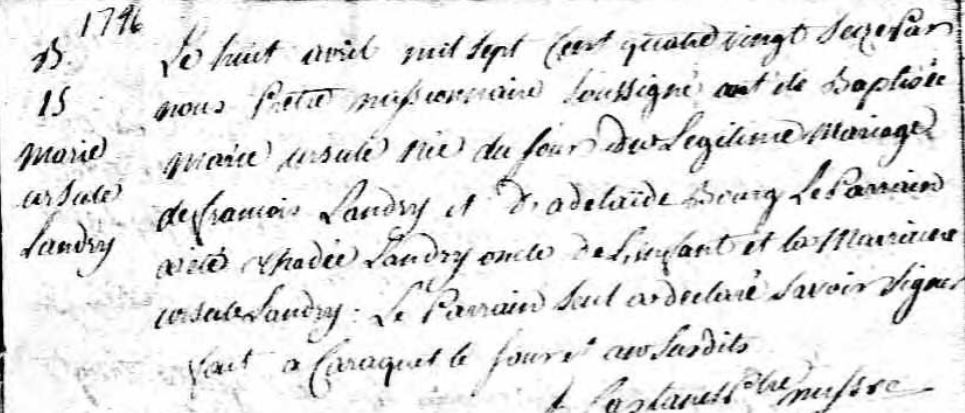 1796
B
15
Marie
ursule
Landry
Le huit avril mil sept Cent quatre vingt Seize Par
nous Prêtre missionnaire Soussigné ont été Baptisée
Marie ursule née du jour du Legitime Mariage
de francois Landry et D'adelaïde Bourg Le Parrain
a été Landry oncle De L'enfant et la Marraine
ursule Landry : Le Parrain Seul a declaré Savoir Signer
fait a Caraquet le jour et an Susdits
Castanet Ptre missre